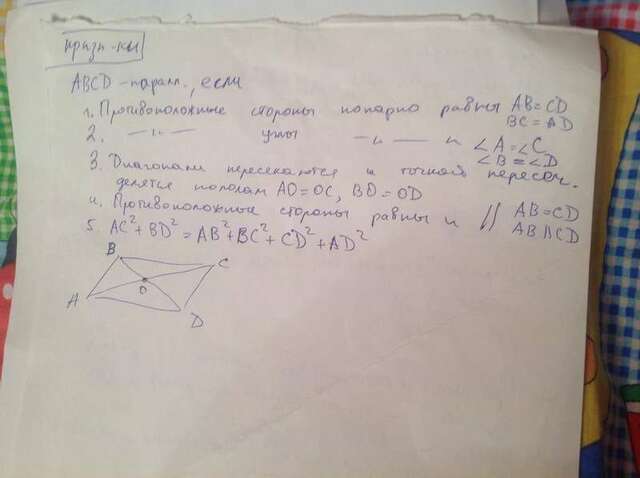 призн-ки
ABCD - паралл., если
1. Противоположные стороны попарно равны AB=CD
BC=AD
2. —"— углы —"— —"— ∠A=∠C
∠B=∠D
3. Диагонали пересекаются и точкой пересеч.
делятся пополам AO=OC, BO=OD
4. Противоположные стороны равны и || AB=CD
AB||CD
5. AC²+BD²=AB²+BC²+CD²+AD²
B
C
A
O
D